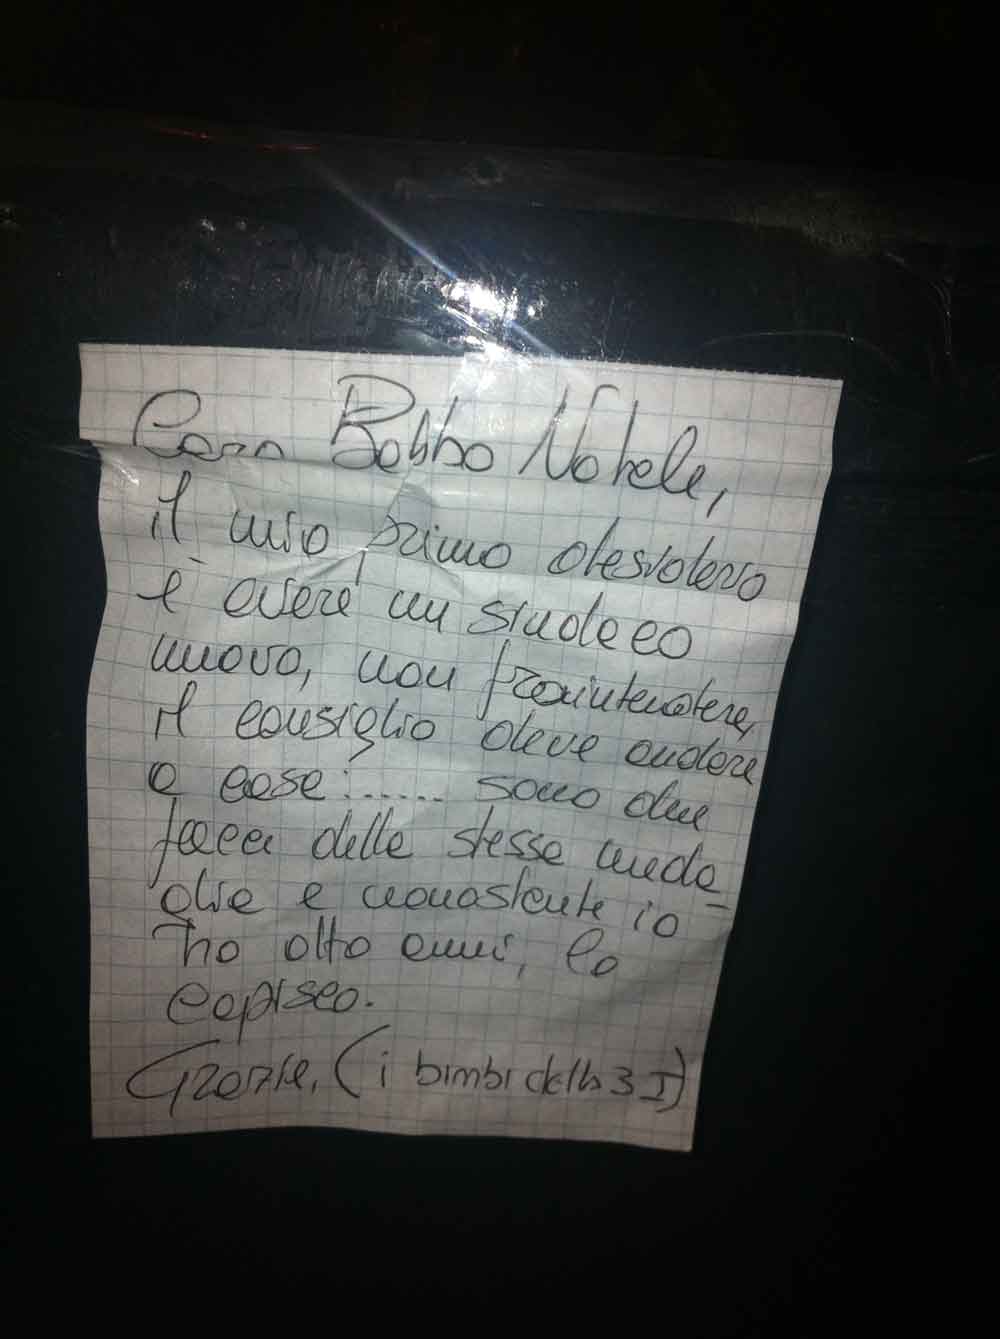 Caro Babbo Natale,
il mio primo desiderio
è avere un sindaco
nuovo, non fraintendere,
il consiglio deve andare
a casa:...... sono due
facce della stessa meda-
glia e nonostante io
ho otto anni, lo
capisco.
Grazie, (i bimbi della 3 I)